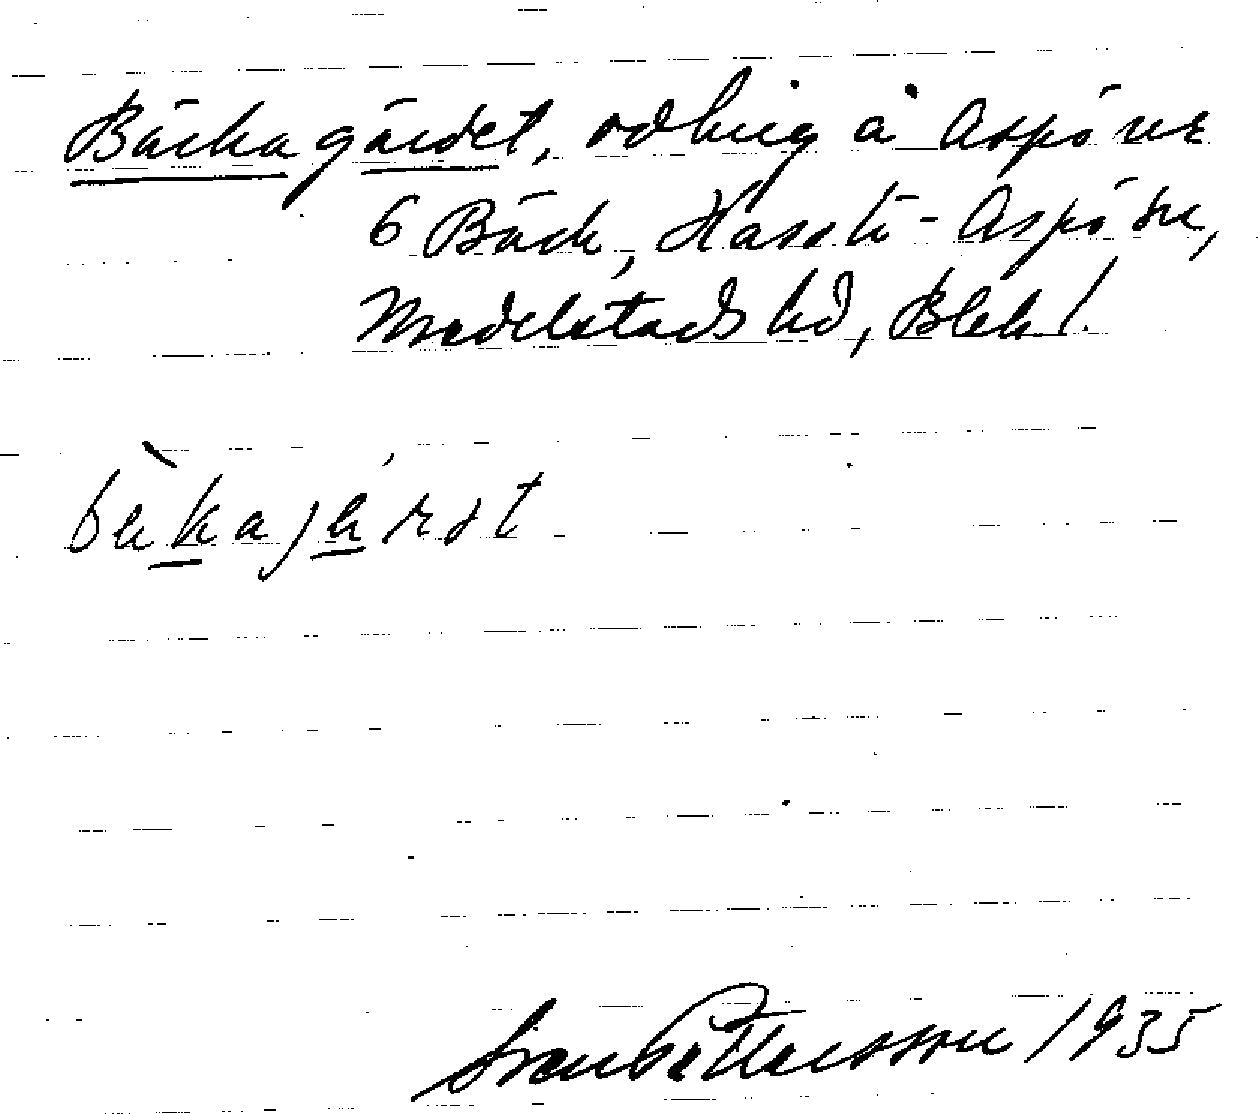 Bäckagärdet, odling å Aspö nr
6 Bäck, Hasslö-Aspö sn,
Medelstads hd, Blek l.
bäkajärdt
Sven Pettersson 1935